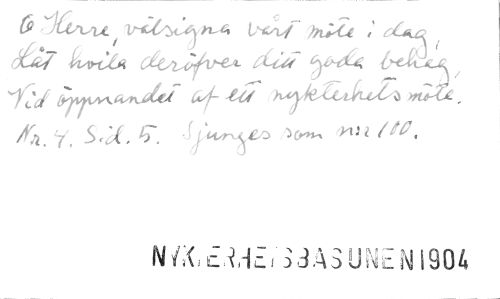 O Herre, välsigna vårt möte i dag,
Låt hvila deröfver ditt goda behag,
Vid öppnandet af ett nykterhetsmöte.
Nr. 4. Sid. 5. Sjunges som n:r 100.
NYKTERHETSBASUNEN 1904